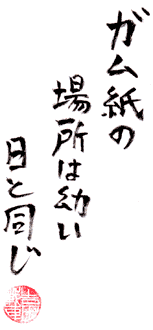 ガム紙の
場所は幼い
日と同じ